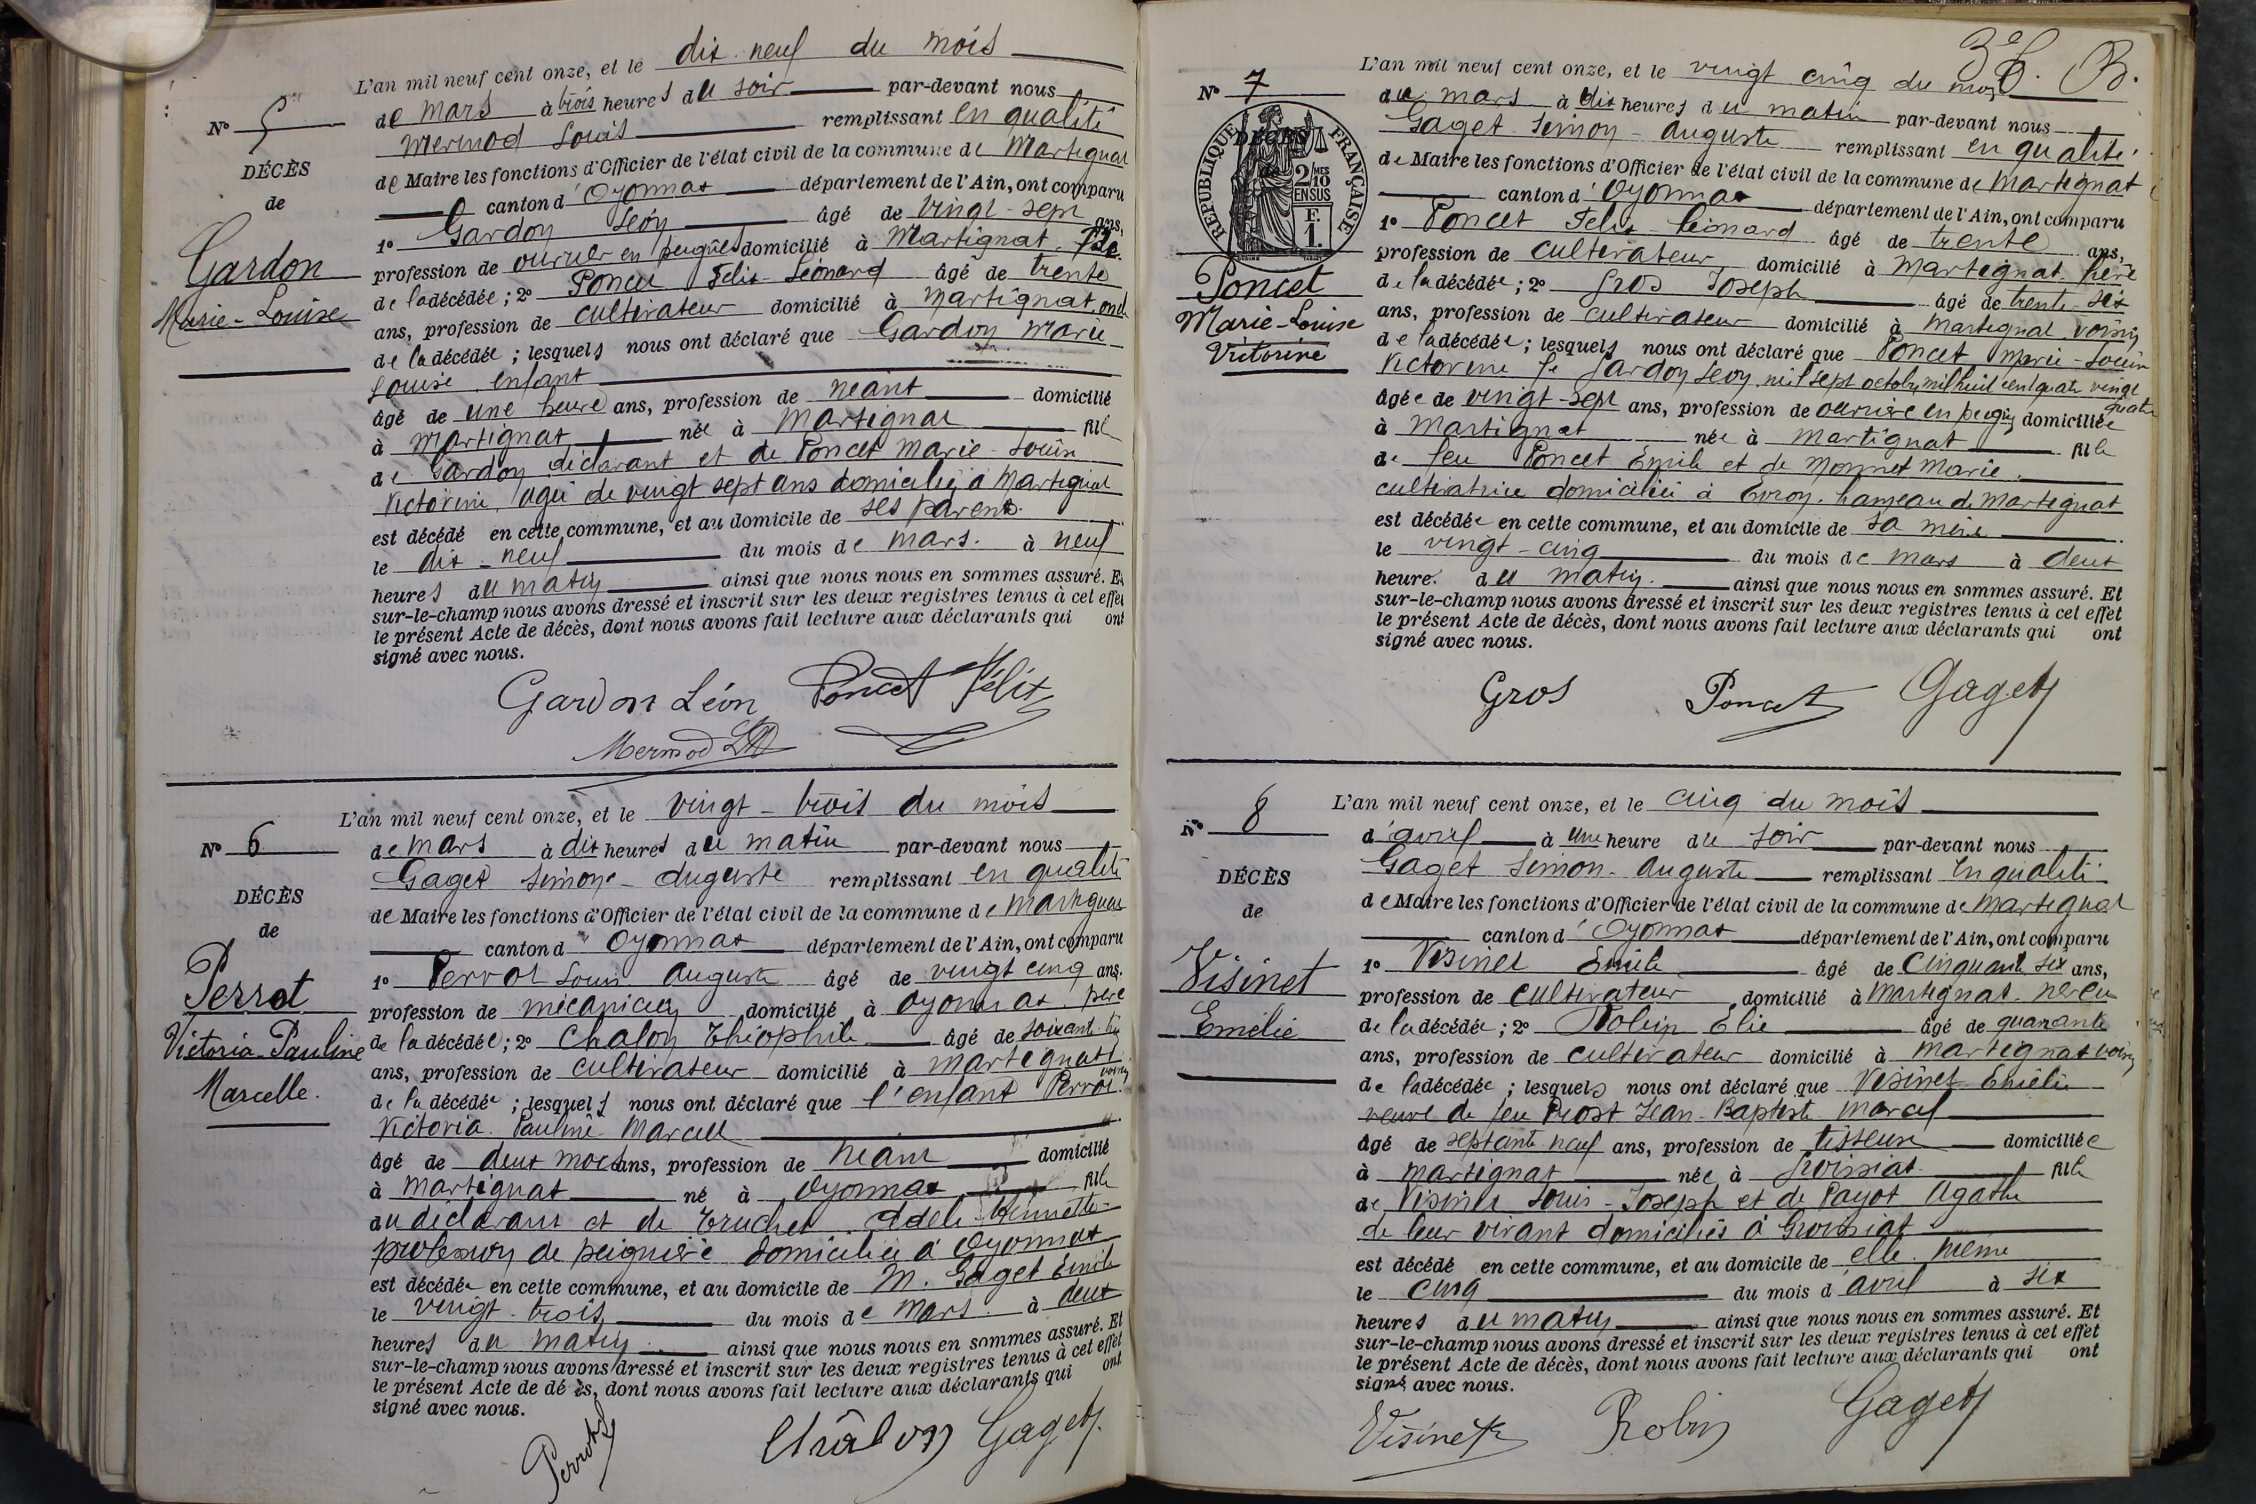 L'an mil neuf cent onze, et le dix-neuf du mois
N° 5
de mars à trois heures du soir par-devant nous
Mermod Louis remplissant en qualité
de Maire les fonctions d'Officier de l'état civil de la commune de Martignat
DÉCÈS
de
Gardon
Marie-Louise
canton d'Oyonnax département de l'Ain, ont comparu
1° Gardon Léon âgé de vingt-sept ans,
profession de ouvrier en peignes domicilié à Martignat. Père
de la décédée; 2° Poncet Félix-Léonard âgé de trente
ans, profession de cultivateur domicilié à Martignat, oncle
de la décédée; lesquels nous ont déclaré que Gardon Marie
Louise enfant
âgé de une heure ans, profession de néant domicilié
à Martignat née à Martignat fille
de Gardon déclarant et de Poncet Marie-Louise
Victorine, agée de vingt sept ans domiciliés à Martignat
est décédé en cette commune, et au domicile de ses parents.
le dix-neuf du mois de mars. à neuf
heures du matin ainsi que nous nous en sommes assuré. Et
sur-le-champ nous avons dressé et inscrit sur les deux registres tenus à cet effet
le présent Acte de décès, dont nous avons fait lecture aux déclarants qui ont
signé avec nous.
Gardon Léon Poncet Félix
Mermod
L'an mil neuf cent onze, et le vingt-trois du mois
N° 6
de mars à dix heures du matin par-devant nous
Gaget Simon-Auguste remplissant en qualité
de Maire les fonctions d'Officier de l'état civil de la commune de Martignat
DÉCÈS
de
Perrot
Victoria-Pauline
Marcelle.
canton d'Oyonnax département de l'Ain, ont comparu
1° Perrot Louis Auguste âgé de vingt cinq ans.
profession de mécanicien domicilié à Oyonnax. père
de la décédée; 2° Chalon Théophile âgé de soixante-
ans, profession de cultivateur domicilié à Martignat voisin
de la décédée; lesquels nous ont déclaré que l'enfant Perrot
Victoria-Pauline-Marcelle
âgé de deux mois ans, profession de néant domicilié
à Martignat né à Oyonnax fille
du déclarant et de Truchet Adèle
profession de peignière domiciliée à Oyonnax
est décédée en cette commune, et au domicile de M. Gaget Emile
le vingt-trois du mois de mars. à deux
heures du matin ainsi que nous nous en sommes assuré. Et
sur-le-champ nous avons dressé et inscrit sur les deux registres tenus à cet effet
le présent Acte de décès, dont nous avons fait lecture aux déclarants qui ont
signé avec nous.
Perrot Châlon Gaget
L'an mil neuf cent onze, et le vingt cinq du mois
N° 7
du mars à dix heures du matin par-devant nous
Gaget Simon-Auguste remplissant en qualité
de Maire les fonctions d'Officier de l'état civil de la commune de Martignat
DÉCÈS
RÉPUBLIQUE FRANÇAISE
2/10 MES
EN SUS
F.
1.
Poncet
Marie-Louise
Victorine
canton d'Oyonnax département de l'Ain, ont comparu
1° Poncet Félix-Léonard âgé de trente ans,
profession de cultivateur domicilié à Martignat. frère
de la décédée; 2° Gros Joseph âgé de trente-six
ans, profession de cultivateur domicilié à Martignat voisin
de la décédée; lesquels nous ont déclaré que Poncet Marie-Louise
Victorine fe Gardon Léon, né le sept octobre mil huit cent quatre vingt
quatre
âgée de vingt-sept ans, profession de ouvrière en peignes domiciliée
à Martignat née à Martignat fille
de feu Poncet Emile et de Monnet Marie.
cultivatrice domiciliée à Evron, hameau de Martignat
est décédée en cette commune, et au domicile de sa mère
le vingt-cinq du mois de mars à deux
heure. du matin. ainsi que nous nous en sommes assuré. Et
sur-le-champ nous avons dressé et inscrit sur les deux registres tenus à cet effet
le présent Acte de décès, dont nous avons fait lecture aux déclarants qui ont
signé avec nous.
Gros Poncet Gaget
L'an mil neuf cent onze, et le cinq du mois
N° 8
d'avril à une heure du soir par-devant nous
Gaget Simon-Auguste remplissant en qualité
de Maire les fonctions d'Officier de l'état civil de la commune de Martignat
DÉCÈS
de
Visinet
Emélie
canton d'Oyonnax département de l'Ain, ont comparu
1° Visinet Emile âgé de cinquante six ans,
profession de cultivateur domicilié à Martignat. neveu
de la décédée; 2° Robin Elie âgé de quarante
ans, profession de cultivateur domicilié à Martignat voisin
de la décédée; lesquels nous ont déclaré que Visinet Emélie
veuve de feu Prost Jean-Baptiste-Marcel
âgé de septante neuf ans, profession de tisseuse domiciliée
à Martignat née à Groissiat fille
de Visinet Louis-Joseph et de Payot Agathe
de leur vivant domiciliés à Groissiat
est décédé en cette commune, et au domicile de elle même
le cinq du mois d'avril à six
heures du matin ainsi que nous nous en sommes assuré. Et
sur-le-champ nous avons dressé et inscrit sur les deux registres tenus à cet effet
le présent Acte de décès, dont nous avons fait lecture aux déclarants qui ont
signé avec nous.
Visinet Robin Gaget